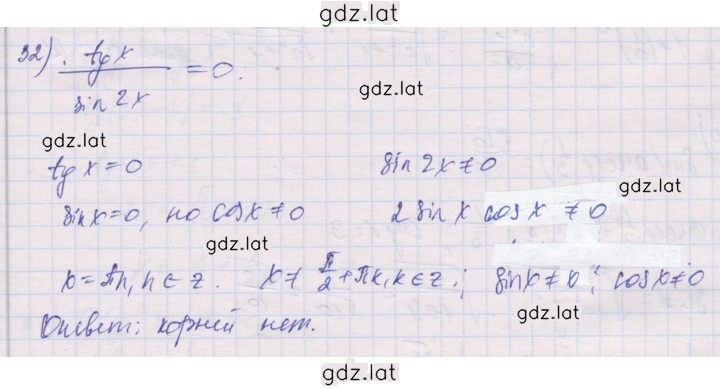 gdz.lat
32) tg x / sin 2x = 0.
gdz.lat
gdz.lat
tg x = 0 sin 2x ≠ 0
gdz.lat
sin x = 0, но cos x ≠ 0 2 sin x cos x ≠ 0
gdz.lat
x = πn, n ∈ z. x ≠ π/2 + πk, k ∈ z.; sin x ≠ 0; cos x ≠ 0
gdz.lat
Ответ: корней нет.
gdz.lat